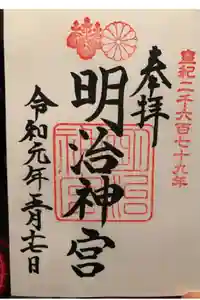 皇紀二千六百七十九年
奉拝
明治神宮
令和元年五月十七日